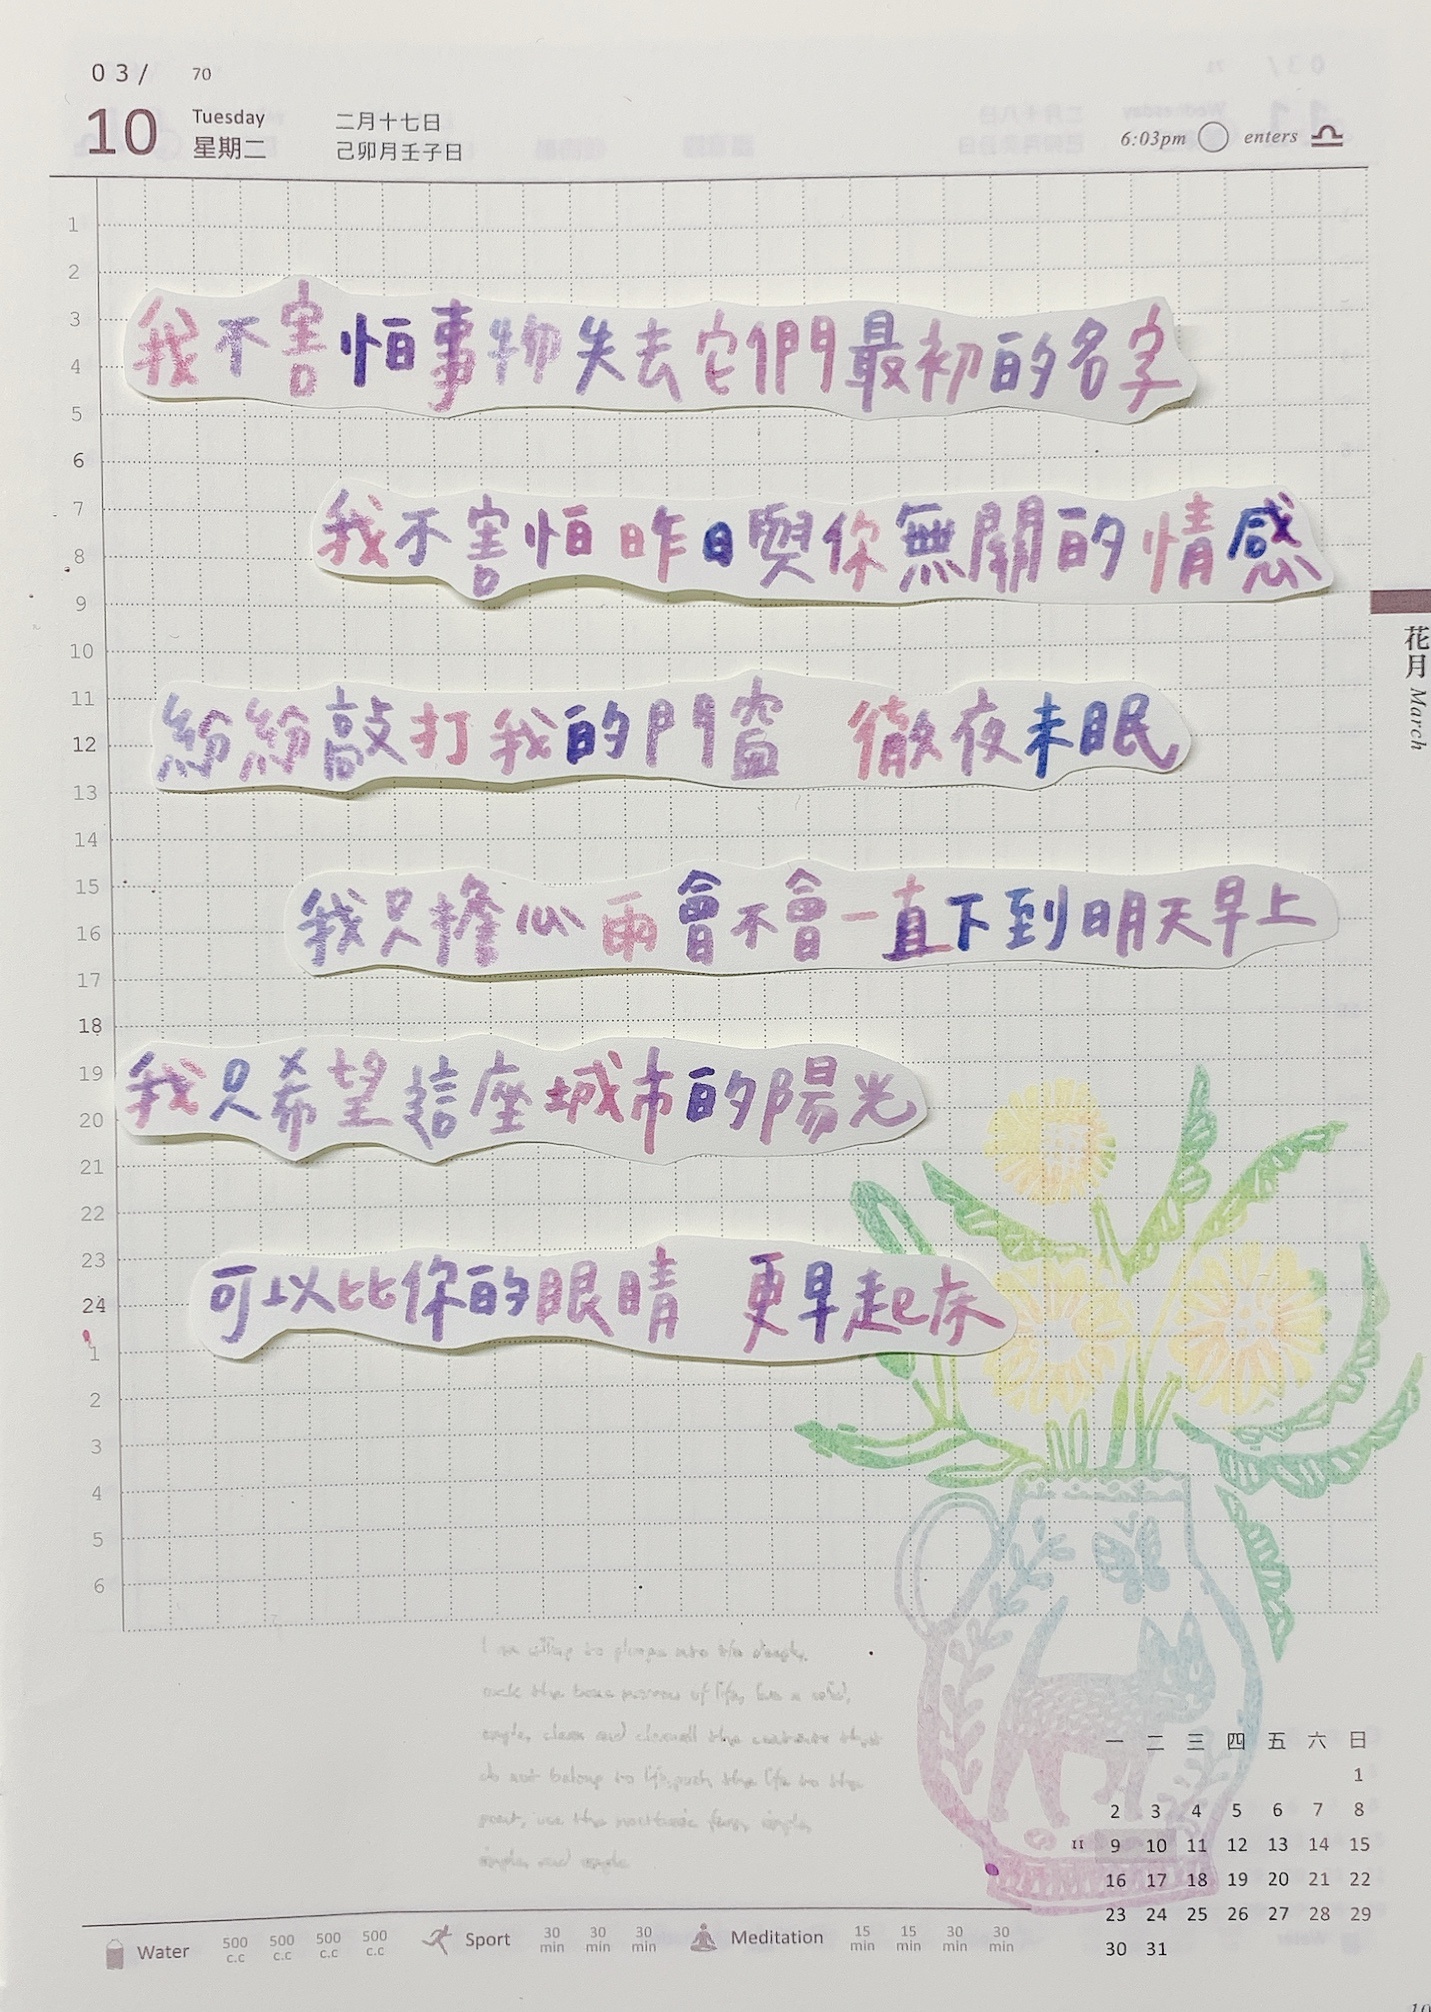 03/ 70
10 Tuesday 二月十七日
星期二 己卯月壬子日
6:03pm enters
1
2
3
4
我不害怕事物失去它們最初的名字
5
6
7
8
我不害怕昨日與你無關的情感
9
10
花月 March
11
12
紛紛敲打我的門窗 徹夜未眠
13
14
15
16
我只擔心雨會不會一直下到明天早上
17
18
19
20
我只希望這座城市的陽光
21
22
23
24
可以比你的眼睛 更早起床
1
2
3
4
5
6
一 二 三 四 五 六 日
1
2 3 4 5 6 7 8
11 9 10 11 12 13 14 15
16 17 18 19 20 21 22
23 24 25 26 27 28 29
30 31
Water 500 c.c 500 c.c 500 c.c 500 c.c Sport 30 min 30 min 30 min Meditation 15 min 15 min 30 min 30 min